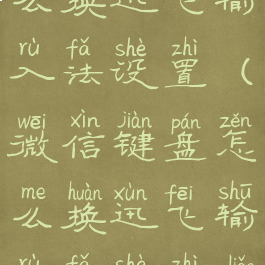 么换迅飞输
rù fǎ shè zhì
入法设置（
wēi xìn jiàn pán zěn
微信键盘怎
me huàn xùn fēi shū
么换迅飞输
rù fǎ shè zhì